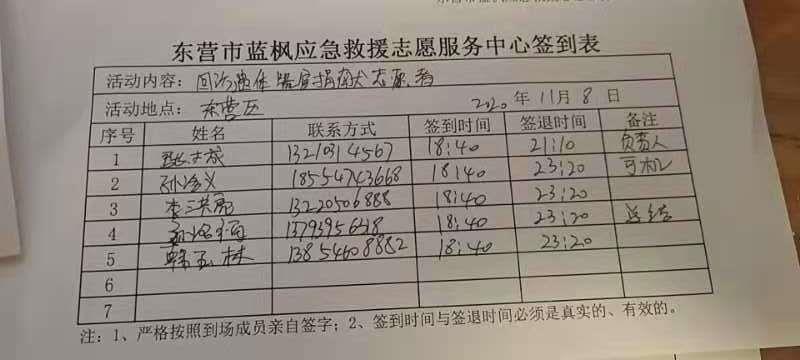 东营市蓝枫应急救援志愿服务中心签到表
活动内容：回访遗体器官捐献志愿者
活动地点：东营区 2020年11月8日
序号 姓名 联系方式 签到时间 签退时间 备注
1 13210314567 18:40 21:10 负责人
2 孙金义 18554743668 18:40 23:20 司机
3 李洪亮 13220506888 18:40 23:20
4 18:40 23:20 总结
5 韩玉林 13854608882 18:40 23:20
6
7
注：1、严格按照到场成员亲自签字；2、签到时间与签退时间必须是真实的、有效的。